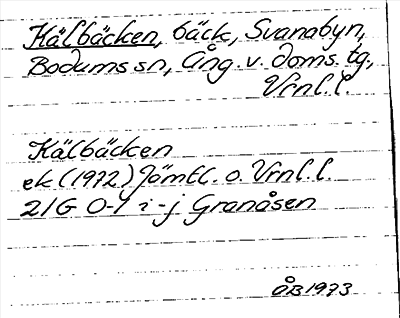 Kälbäcken, bäck, Svanabyn,
Bodums sn, Ång. v. doms. tg.,
Vrnl. l.
Kälbäcken
ek (1972) Jämtl. o. Vrnl. l.
21G 0-1 i-j Granåsen
ÅB 1973